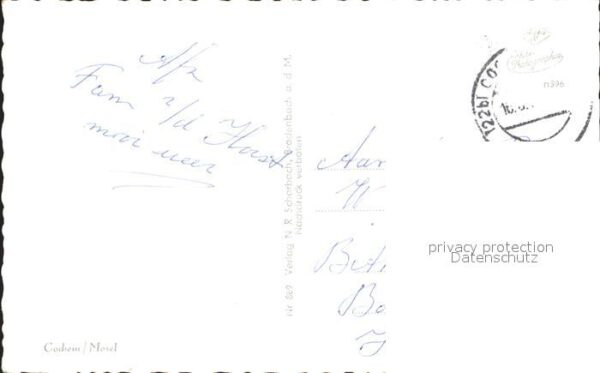 Afz
Fam v/d Horst
mooi weer
Nr. 869 Verlag N. R. Scharbach, Gradenbach a. d. M.
Nachdruck verboten
Aan
W
Be
Bo
Echte Photographie
n396
(22b) COC
16.
privacy protection
Datenschutz
Cochem / Mosel